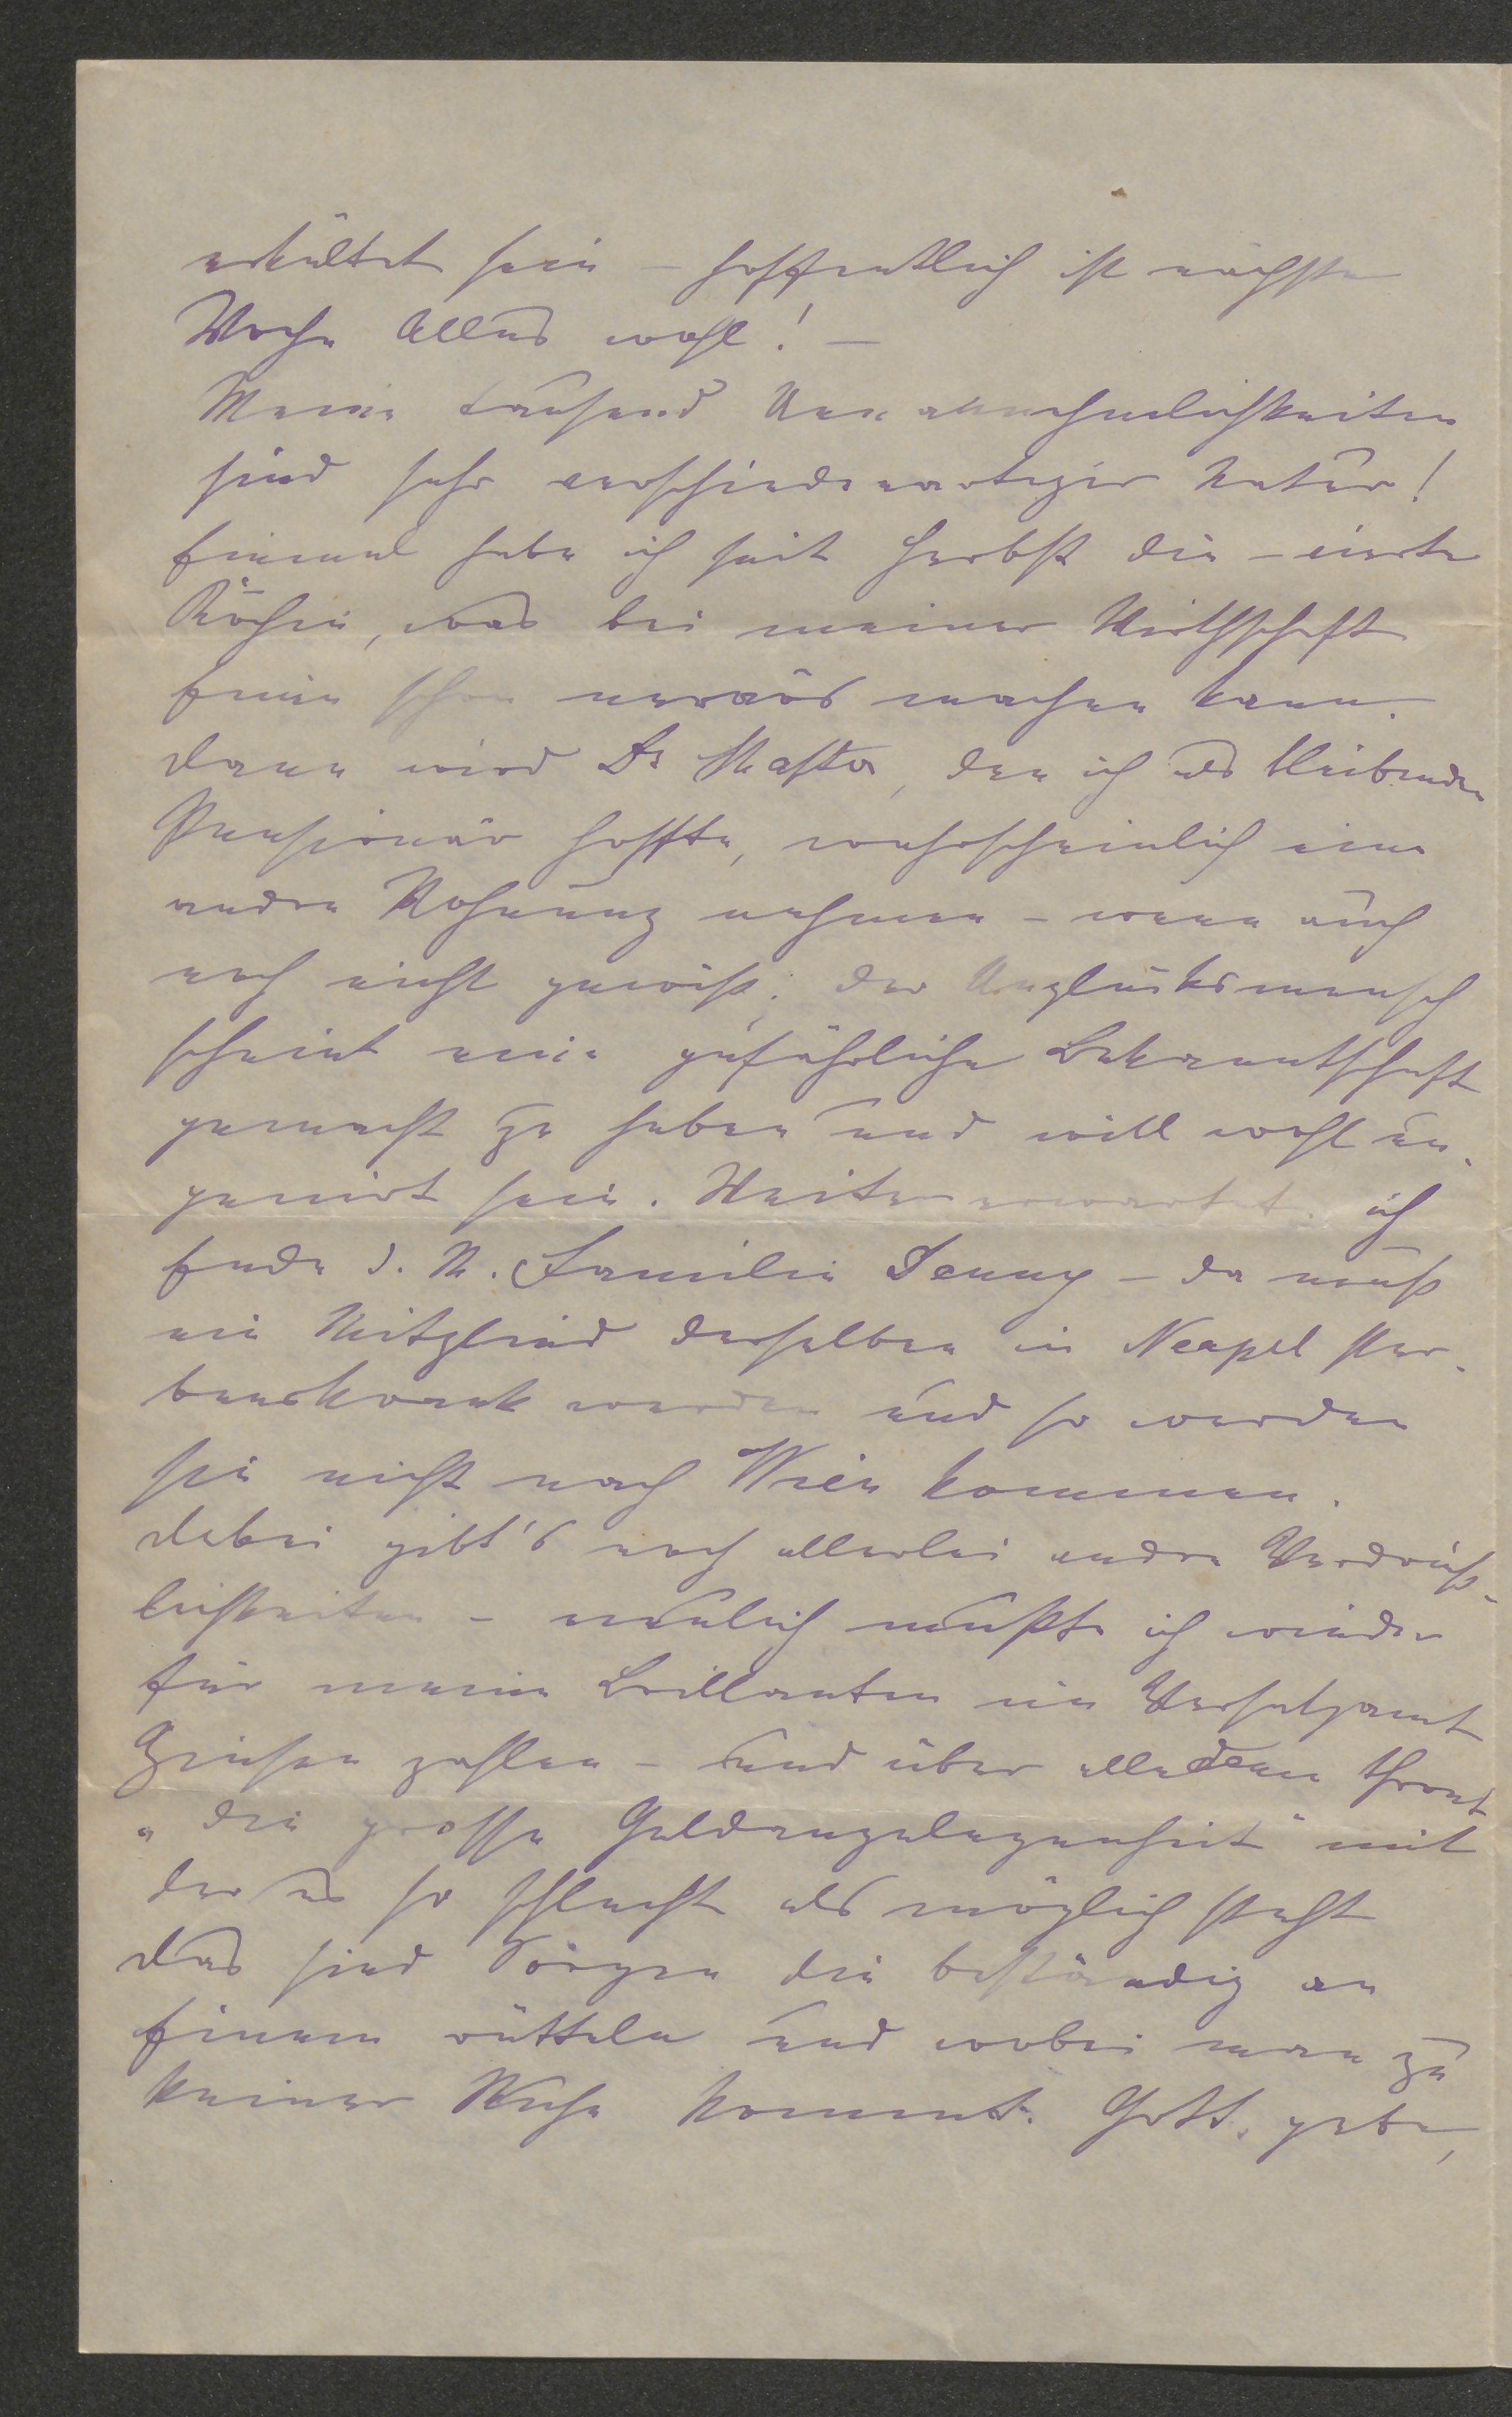 erkältet sein – hoffentlich ist nächste
Woche Alles wohl! –
Meine tausend Unannehmlichkeiten
sind sehr verschiedenartiger Natur!
Einmal habe ich seit Herbst die – vierte
Köchin, was bei meiner Wirthschaft
Einen schon nervös machen kann.
Dann wird Dr Mastor, den ich als bleibenden
Pensionär hoffte, wahrscheinlich eine
andre Wohnung nehmen – wenn auch
noch nicht gewiß; der Unglücksmensch
scheint eine gefährliche Bekanntschaft
gemacht zu haben und will wohl un-
genirt sein. Weiter erwartet ich
Ende d. M. Familie Jenny – da muß
ein Mitglied derselben in Neapel ster-
benskrank werden und so werden
sie nicht nach Wien kommen.
Dabei gibt's noch allerlei andre Verdrieß-
lichkeiten – neulich mußte ich wieder
für meine Brillanten im Versatzamt
Zinsen zahlen – und über alledem thront
"die grosse Geldangelegenheit" mit
der es so schlecht als möglich steht
das sind Sorgen die beständig an
Einem rütteln und wobei man zu
keiner Ruhe kommt. Gott gebe,